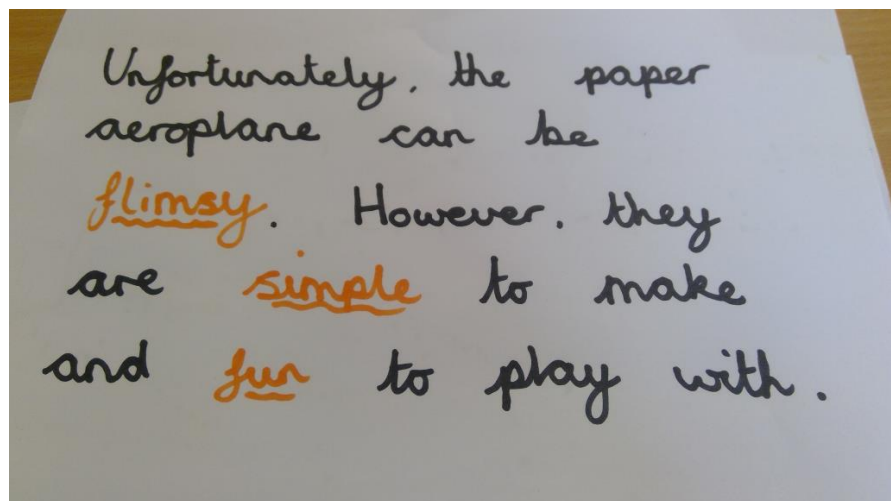 Unfortunately, the paper
aeroplane can be
flimsy. However, they
are simple to make
and fun to play with.